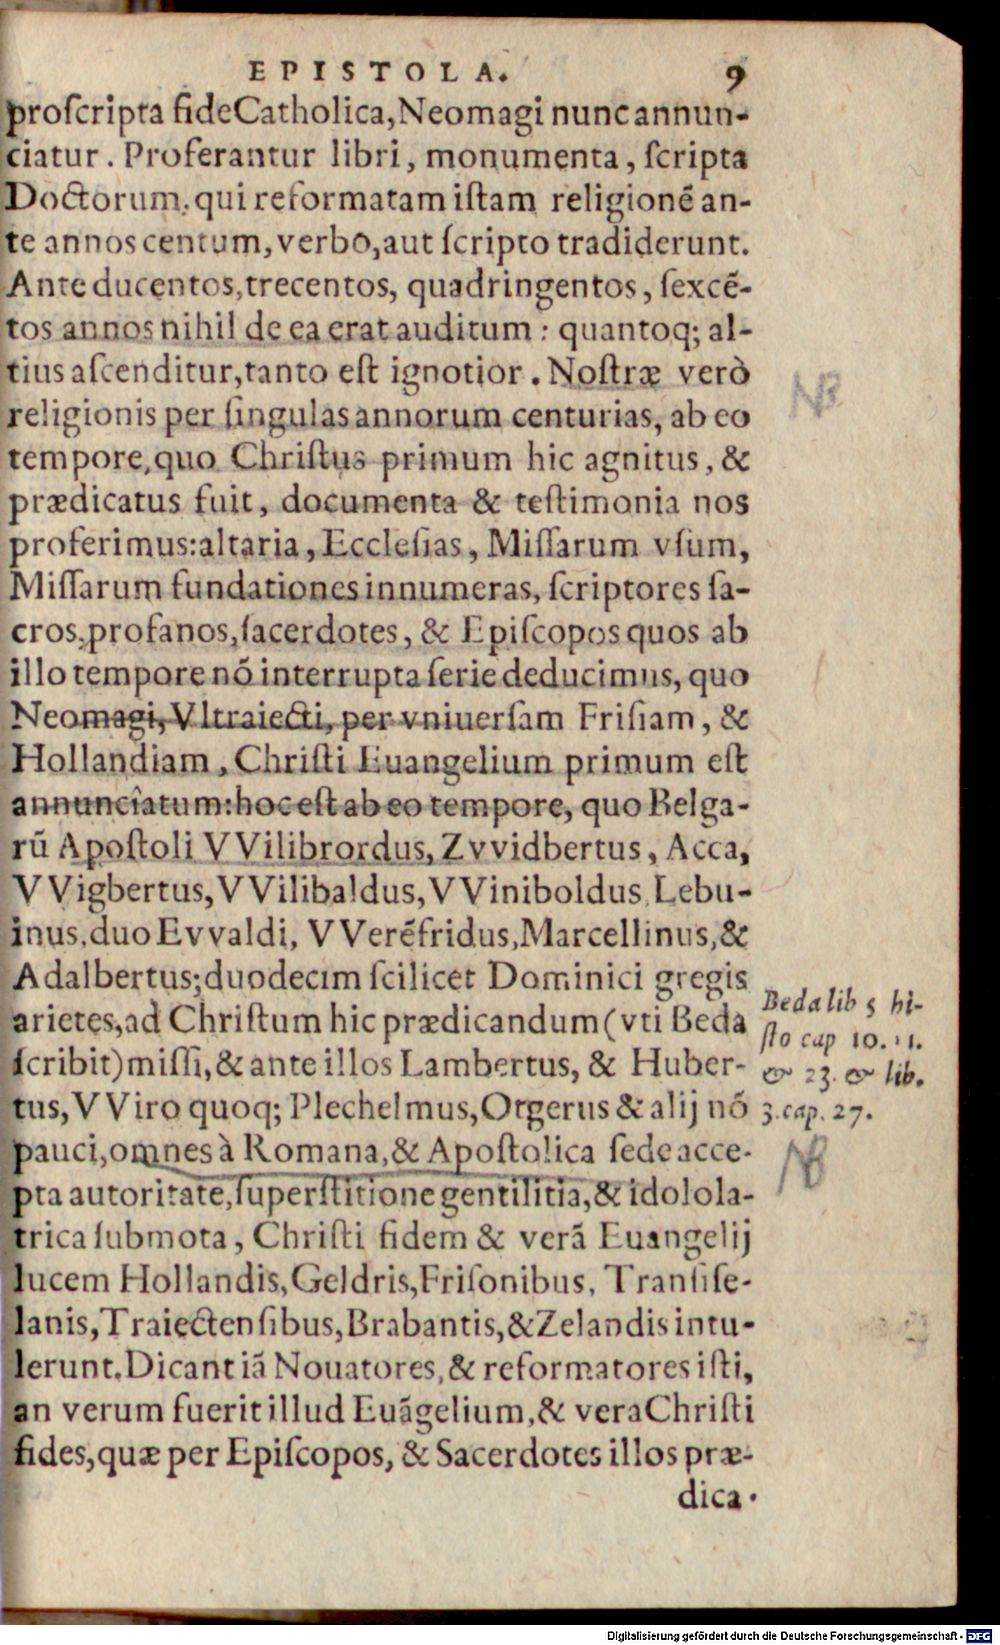 EPISTOLA. 9
proſcripta fide Catholica, Neomagi nunc annun-
ciatur. Proferantur libri, monumenta, ſcripta
Doctorum, qui reformatam iſtam religionẽ an-
te annos centum, verbo, aut ſcripto tradiderunt.
Ante ducentos, trecentos, quadringentos, ſexcẽ-
tos annos nihil de ea erat auditum: quantoq; al-
tius aſcenditur, tanto eſt ignotior. Noſtræ verò
NB
religionis per ſingulas annorum centurias, ab eo
tempore, quo Chriſtus primum hic agnitus, &
prædicatus fuit, documenta & teſtimonia nos
proferimus: altaria, Eccleſias, Miſſarum vſum,
Miſſarum fundationes innumeras, ſcriptores ſa-
cros, profanos, ſacerdotes, & Epiſcopos quos ab
illo tempore nõ interrupta ſerie deducimus, quo
Neomagi, Vltraiecti, per vniuerſam Friſiam, &
Hollandiam, Chriſti Euangelium primum eſt
annunciatum: hoc eſt ab eo tempore, quo Belga-
rũ Apoſtoli VVilibrordus, Zvvidbertus, Acca,
VVigbertus, VVilibaldus, VViniboldus, Lebu-
inus, duo Evvaldi, VVerẽfridus, Marcellinus, &
Adalbertus; duodecim ſcilicet Dominici gregis
arietes, ad Chriſtum hic prædicandum (vti Beda
ſcribit) miſſi, & ante illos Lambertus, & Huber-
tus, VViro quoq; Plechelmus, Otgerus & alij nõ
Beda lib 5 hi-
ſto cap 10. 11.
& 23. & lib.
3. cap. 27.
pauci, omnes à Romana, & Apoſtolica ſede acce-
NB
pta autoritate, ſuperſtitione gentilitia, & idolola-
trica ſubmota, Chriſti fidem & verã Euangelij
lucem Hollandis, Geldris, Friſonibus, Tranſiſe-
lanis, Traiectenſibus, Brabantis, & Zelandis intu-
lerunt. Dicant iã Nouatores, & reformatores iſti,
an verum fuerit illud Euãgelium, & vera Chriſti
fides, quæ per Epiſcopos, & Sacerdotes illos præ-
dica-
Digitalisierung gefördert durch die Deutsche Forschungsgemeinschaft - DFG